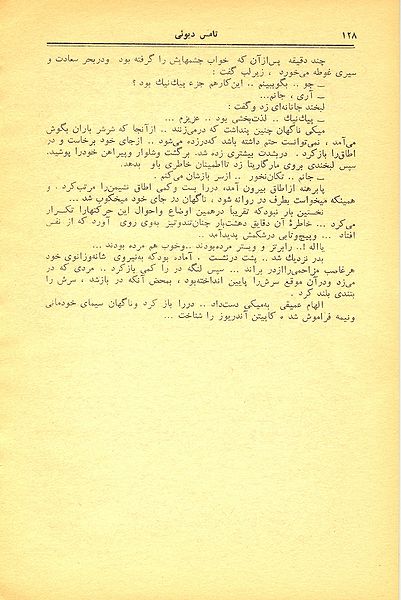 ۱۲۸
تامس دیوئی
چند دقیقه پس‌از‌آن که خواب چشمهایش را گرفته بود ودربحر سعادت و
سیری غوطه می‌خورد ، زیرلب گفت :
ــ جو .. بگوببینم .. این‌کارهم جزء پیك‌نیك بود ؟
ــ آری ، جانم...
لبخند جانانه‌ای زد وگفت :
ــ پیك‌نیك .. لذت‌بخشی بود .. عزیزم ...
میکی ناگهان چنین پنداشت که درمی‌زنند .. ازآنجا که شرشر باران بگوش
می‌آمد ، نمی‌توانست حتم داشته باشد که‌درزده می‌شود .. ازجای خود برخاست و در
اطاق‌را بازکرد . دربشدت بیشتری زده شد. برگشت وشلوار وپیراهن خودرا پوشید.
سپس لبخندی بروی مارگارینا زد تااطمینان خاطری باو بدهد.
ــ جانم .. تکان‌نخور .. ازسر بازشان می‌کنم .
پابرهنه ازاطاق بیرون آمد، دررا پست وکمی اطاق نشیمن‌را مرتب‌کرد . و
همینکه میخواست بطرف در روانه شود ، ناگهان در جای خود میخکوب شد ...
نخستین بار نبودکه تقریباً درهمین اوضاع واحوال این حرکتهارا تکـرار
می‌کرد ... خاطرهٔ آن دقایق دهشت‌بار چنان‌تندوتیز به‌وی روی آورد که از نفس
افتاد ... وپیچ‌وتابی درشکمش پدیدآمد ..
یاالله !.. رابرتز و وبستر مرده‌بودند ..وخوب هم مرده بودند ...
بدر نزدیك شد .. پشت درنشست . آماده بودکه به‌نیروی شانه‌وزانوی خود
هرغاصب مزاحمی‌راازدر براند ... سپس لنگه در را کمی بازکرد .. مردی که در
می‌زد ودرآن موقع سرش‌را پایین انداخته‌بود ، بمحض آنکه در بازشد ، سرش را
بتندی بلند کرد .
الهام عمیقی به‌میکی دست‌داد .. دررا باز کرد وناگهان سیمای خودمانی
ونیمه فراموش شدهٔ کاپیتن آندریوز را شناخت ...